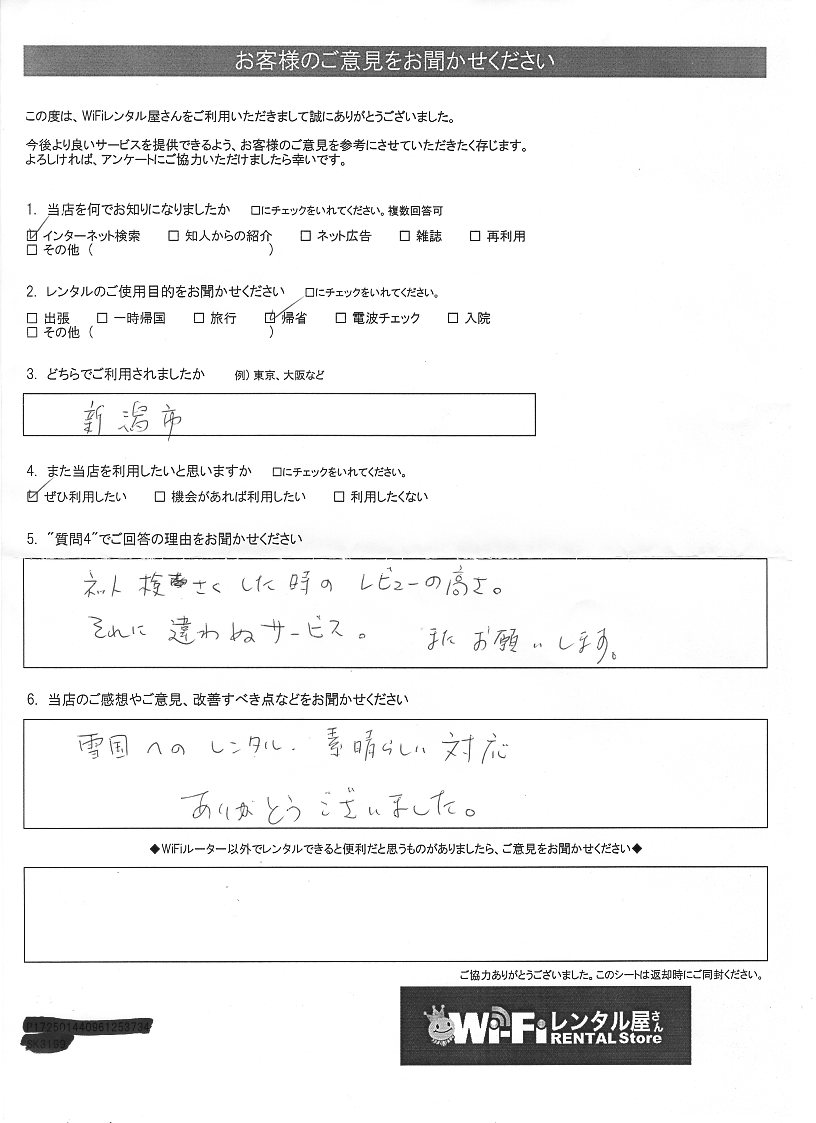 お客様のご意見をお聞かせください
この度は、WiFiレンタル屋さんをご利用いただきまして誠にありがとうございました。
今後より良いサービスを提供できるよう、お客様のご意見を参考にさせていただきたく存じます。
よろしければ、アンケートにご協力いただけましたら幸いです。
1. 当店を何でお知りになりましたか □にチェックをいれてください。複数回答可
☑ インターネット検索 □ 知人からの紹介 □ ネット広告 □ 雑誌 □ 再利用
□ その他 ( )
2. レンタルのご使用目的をお聞かせください □にチェックをいれてください。
□ 出張 □ 一時帰国 □ 旅行 ☑ 帰省 □ 電波チェック □ 入院
□ その他 ( )
3. どちらでご利用されましたか 例) 東京、大阪など
新潟市
4. また当店を利用したいと思いますか □にチェックをいれてください。
☑ ぜひ利用したい □ 機会があれば利用したい □ 利用したくない
5. "質問4"でご回答の理由をお聞かせください
ネット検さくした時のレビューの高さ。
それに違わぬサービス。 またお願いします。
6. 当店のご感想やご意見、改善すべき点などをお聞かせください
雪国へのレンタル. 素晴らしい対応
ありがとうございました。
◆WiFiルーター以外でレンタルできると便利だと思うものがありましたら、ご意見をお聞かせください◆
ご協力ありがとうございました。このシートは返却時にご同封ください。
Wi-Fiレンタル屋さん
RENTAL Store